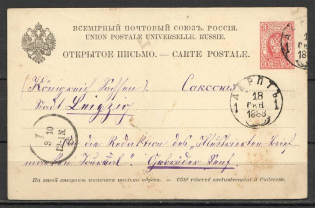 ВСЕМІРНЫЙ ПОЧТОВЫЙ СОЮЗЪ. РОССІЯ.
UNION POSTALE UNIVERSELLE. RUSSIE.
ОТКРЫТОЕ ПИСЬМО. — CARTE POSTALE.
(Königreich Sachsen) Саксонія
Leipzig
1 ДЕРПТЪ 1
18
СЕН
1888
die Redaktion des „Illustrirten
Journal". Gebrüder
На этой сторонѣ пишется только адресъ. — Côté réservé exclusivement à l'adresse.